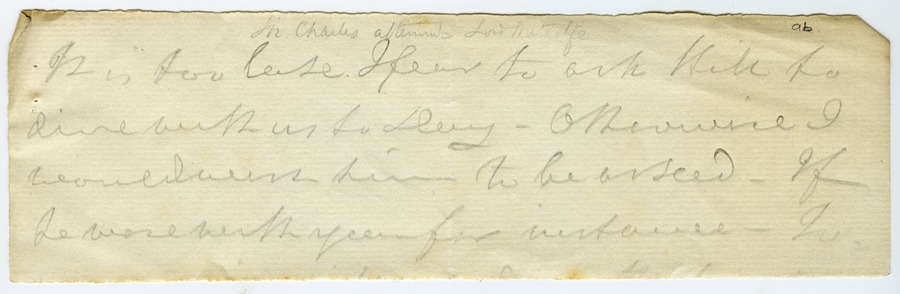 Sir Charles afterwards Lord Metcalfe
9b
It is too late I fear to ask Hill to
dine with us to day - Otherwise I
would wish him to be asked - If
he were with you for instance -